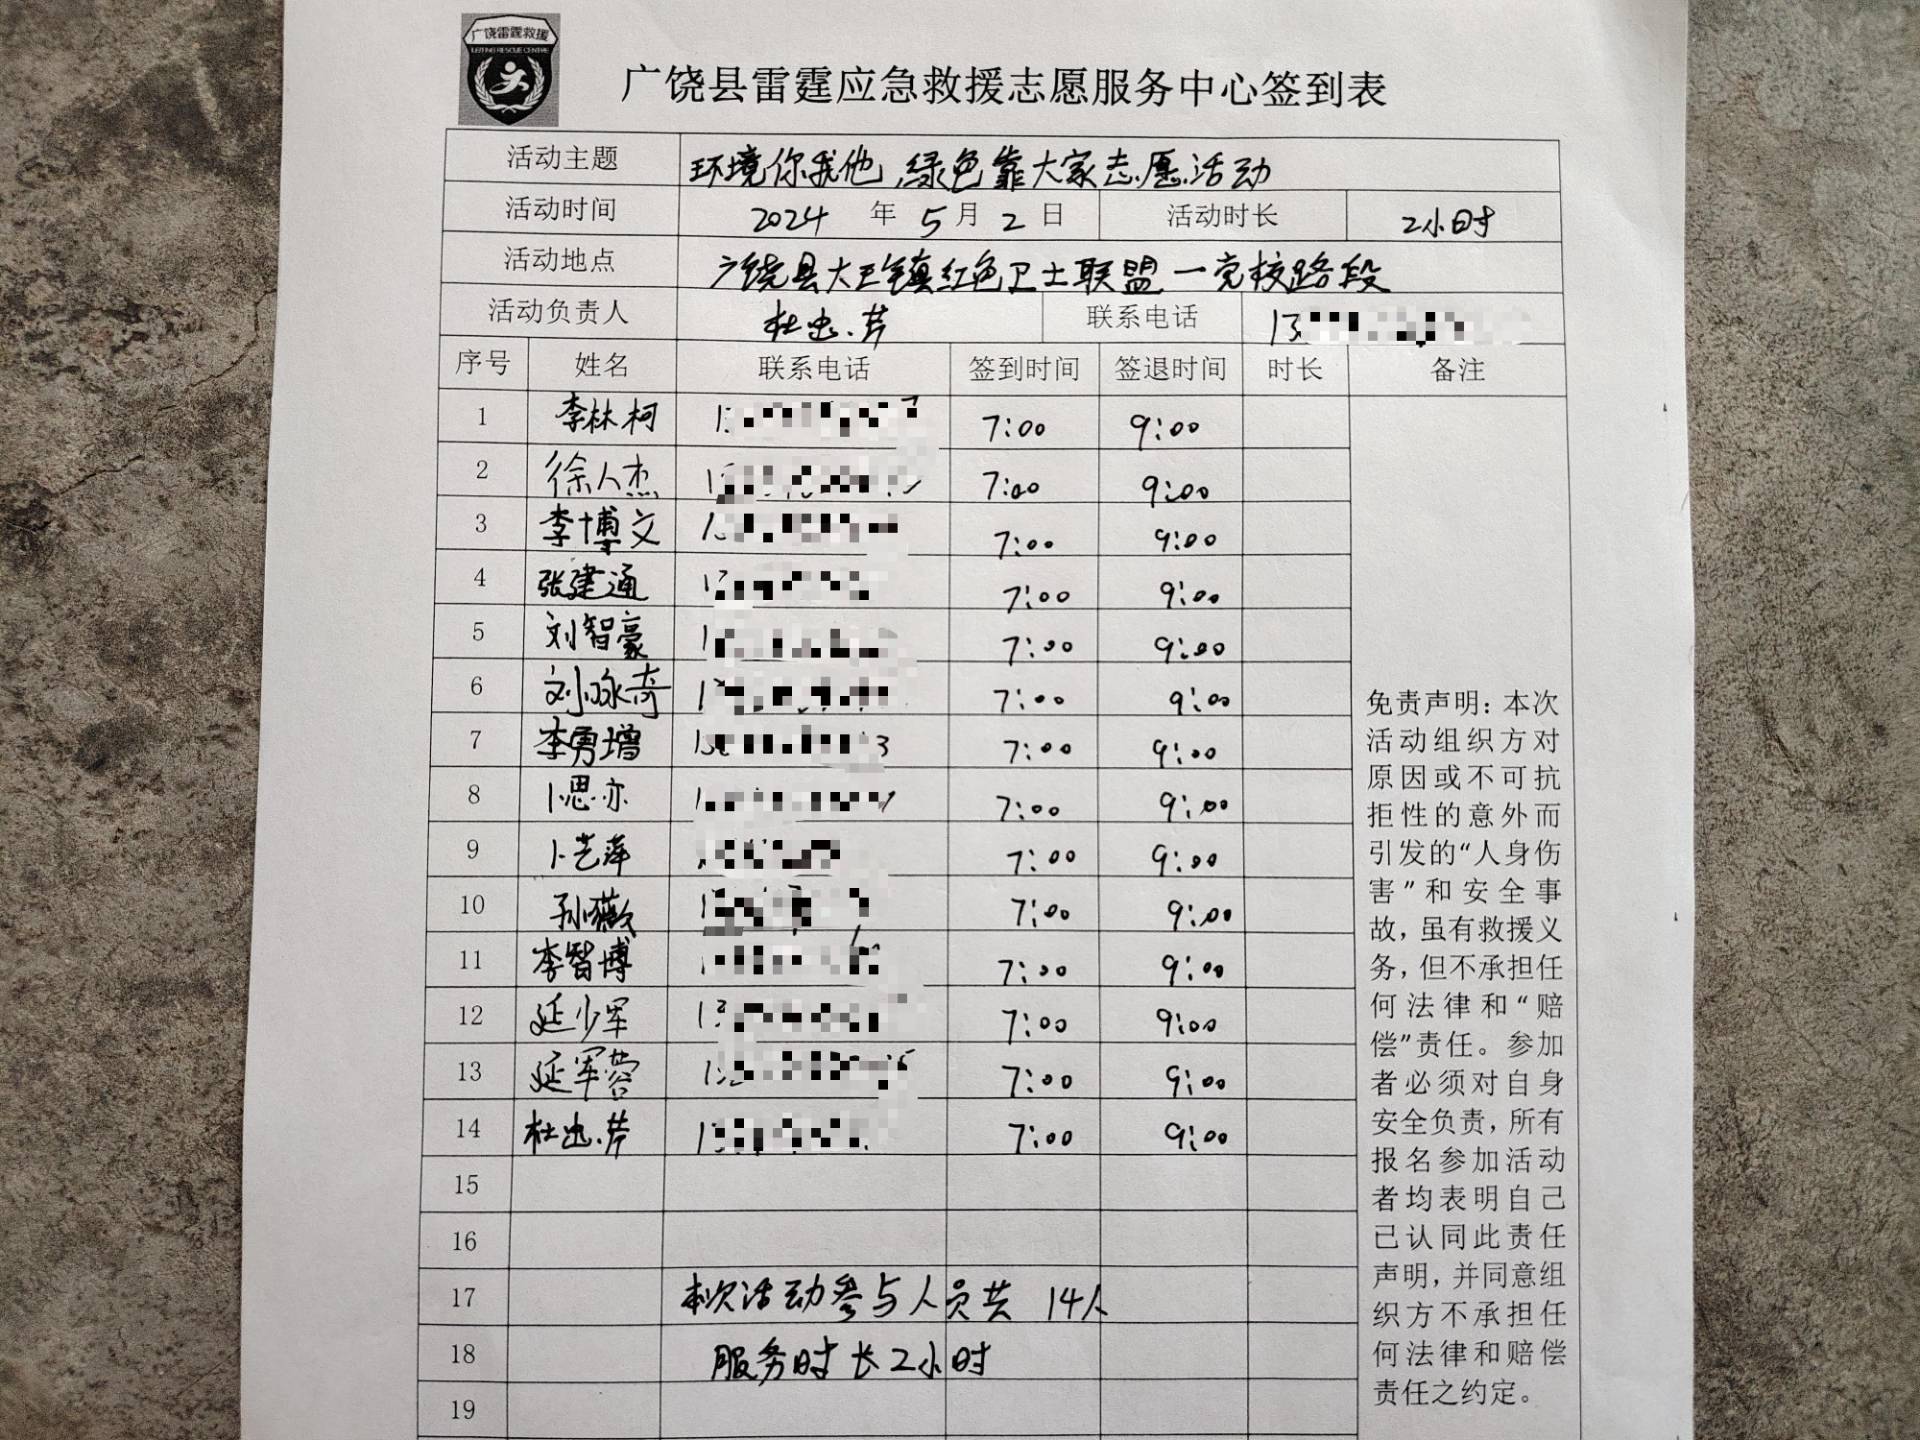 广饶雷霆救援
LEITING RESCUE CENTRE
广饶县雷霆应急救援志愿服务中心签到表
活动主题 环境你我他,绿色靠大家志愿活动
活动时间 2024 年 5 月 2 日 活动时长 2小时
活动地点 广饶县大王镇红色卫士联盟一党校路段
活动负责人 杜忠芹 联系电话 13
序号 姓名 联系电话 签到时间 签退时间 时长 备注
1 李林柯 7:00 9:00
2 徐人杰 7:00 9:00
3 李博文 7:00 9:00
4 张建通 7:00 9:00
5 刘智豪 7:00 9:00
6 刘咏奇 7:00 9:00
7 李勇增 7:00 9:00
8 卜思亦 7:00 9:00
9 卜艺萍 7:00 9:00
10 孙薇 7:00 9:00
11 李智博 7:00 9:00
12 延少军 7:00 9:00
13 延军蓉 7:00 9:00
14 杜忠芹 7:00 9:00
15
16
17 本次活动参与人员共 14人
18 服务时长2小时
19
免责声明：本次
活动组织方对
原因或不可抗
拒性的意外而
引发的“人身伤
害”和安全事
故，虽有救援义
务，但不承担任
何法律和“赔
偿”责任。参加
者必须对自身
安全负责，所有
报名参加活动
者均表明自己
已认同此责任
声明，并同意组
织方不承担任
何法律和赔偿
责任之约定。